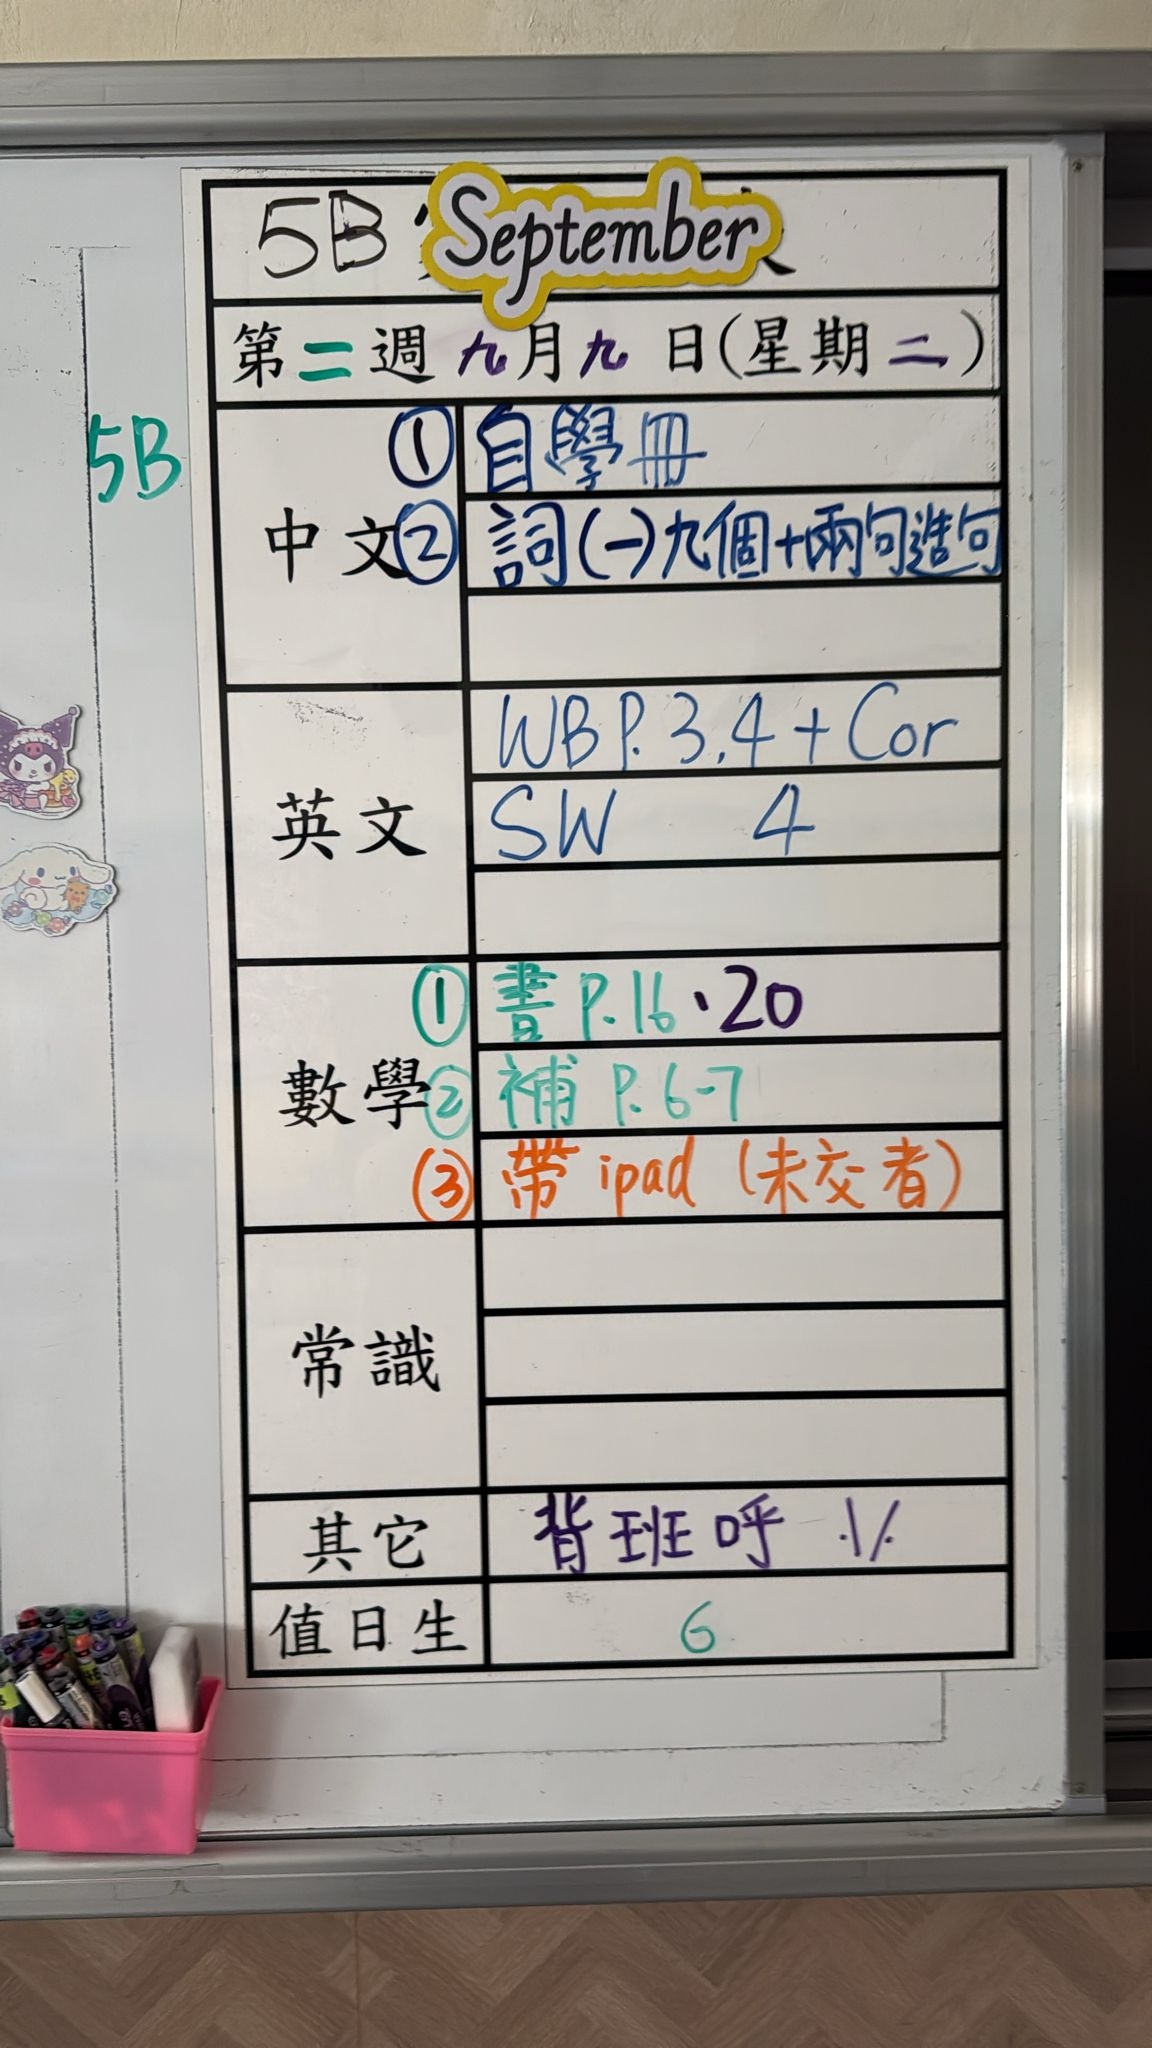 5B September
第二週九月九日(星期二)
5B
中文
① 自學冊
② 詞(一)九個+兩句造句
英文
WB P.3,4 + Cor
SW 4
數學
① 書 P.16、20
② 補 P.6-7
③ 帶 ipad (未交者)
常識
其它 背班呼
值日生 6